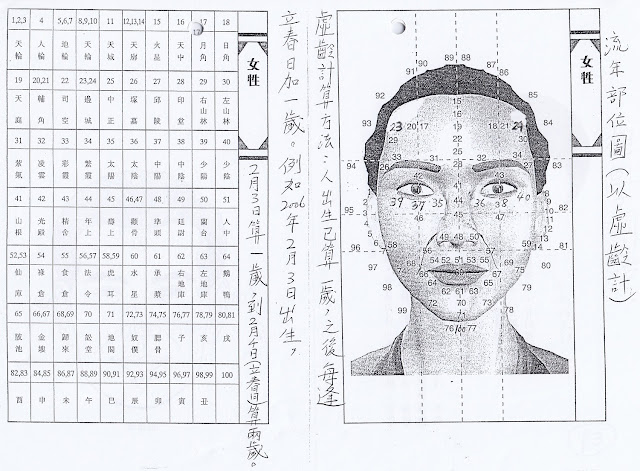 流年部位圖(以虛齡計)
女牲
89 88
90 87
91 86
92 85
15
16
93 23 20 17 19 18 21 24 84
22
94 25 83
26 28 27
39 37 35 41 36 38 40
42 43
44
95 46 45 47 82
96 81
97 80
49 48 50
51
60
98 79
99 78
70 71
76 100 77
虛齡計算方法:人出生已算一歲,之後每逢
立春日加一歲。例如2006年2月3日出生,
2月3日算一歲,到2月4日(立春日)算兩歲。
女牲
1,2,3 4 5,6,7 8,9,10 11 12,13,14 15 16 17 18
天輪 人輪 地輪 天輪 天城 天廓 火星 天中 月角 日角
19 20,21 22 23,24 25 26 27 28 29 30
天庭 輔角 司空 邊城 中正 塚墓 邱陵 印堂 右山林 左山林
31 32 33 34 35 36 37 38 39 40
紫氣 凌雲 彩霞 繁霞 太陽 太陰 中陽 中陰 少陽 少陰
41 42 43 44 45 46,47 48 49 50 51
山根 光殿 精舍 年上 壽上 顴骨 準頭 廷尉 蘭台 人中
52,53 54 55 56,57 58,59 60 61 62 63 64
仙庫 祿倉 食倉 法令 虎耳 水星 承漿 右地庫 左地庫 鵝鴨
65 66,67 68,69 70 71 72,73 74,75 76,77 78,79 80,81
陂池 金縷 歸來 頌堂 地閣 奴僕 腮骨 子 亥 戌
82,83 84,85 86,87 88,89 90,91 92,93 94,95 96,97 98,99 100
酉 申 未 午 巳 辰 卯 寅 丑